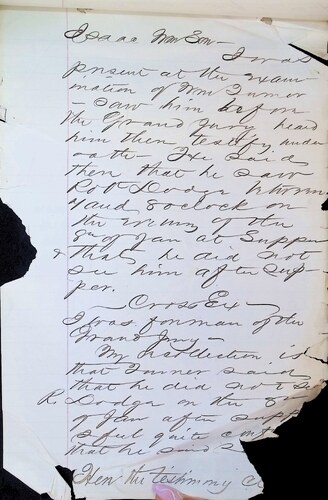 Isaac
I was
present at the exam
ination of Wm Turner
- saw him before
the Grand Jury heard
him then testify under
oath - He said
then that he saw
Rob Dodge
4 and 8 oclock on
the evening of the
8th of Jan at Supper
& that he did not
see him after Sup-
per.
Cross Ex
I was foreman of the
Grand Jury -
My recollection is
that Turner said
that he did not se
R. Dodge on the 8th
of Jan after supp
I feel quite conf
that he said
the testimony